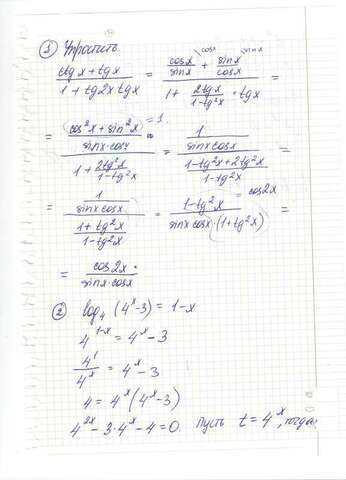 1) Упростить.
(ctg x + tg x)/(1 + tg2x tgx) = (cosx/sinx + sinx/cosx)/(1 + 2tgx/(1-tg²x) · tgx) =
= ((cos²x + sin²x)/(sinx·cosx))/(1 + 2tg²x/(1-tg²x)) = (1/(sinxcosx))/((1-tg²x+2tg²x)/(1-tg²x)) =
= (1/(sinxcosx))/((1+tg²x)/(1-tg²x)) = (1-tg²x)/(sinxcosx·(1+tg²x)) =
= cos2x/(sinx·cosx)
2) log₄(4ˣ-3) = 1-x
4¹⁻ˣ = 4ˣ-3
4¹/4ˣ = 4ˣ-3
4 = 4ˣ(4ˣ-3)
4²ˣ-3·4ˣ-4=0. Пусть t=4ˣ, тогда: